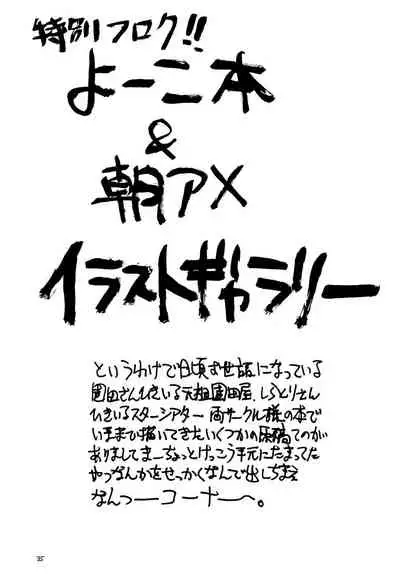 特別フロク!!
よーこ本
&
朝アメ
イラストギャラリー
というわけで日頃お世話になっている
園田さんひきいる元祖園田屋、しらとりさん
ひきいるスターシアター 両サークル様の本で
いままで描いてきたいくつかの原稿てのが
ありまして まーちょっとけっこう手元にたまってた
やつなんかをせっかくなんで出しちまえ
なんつーーコーナー〜。
35